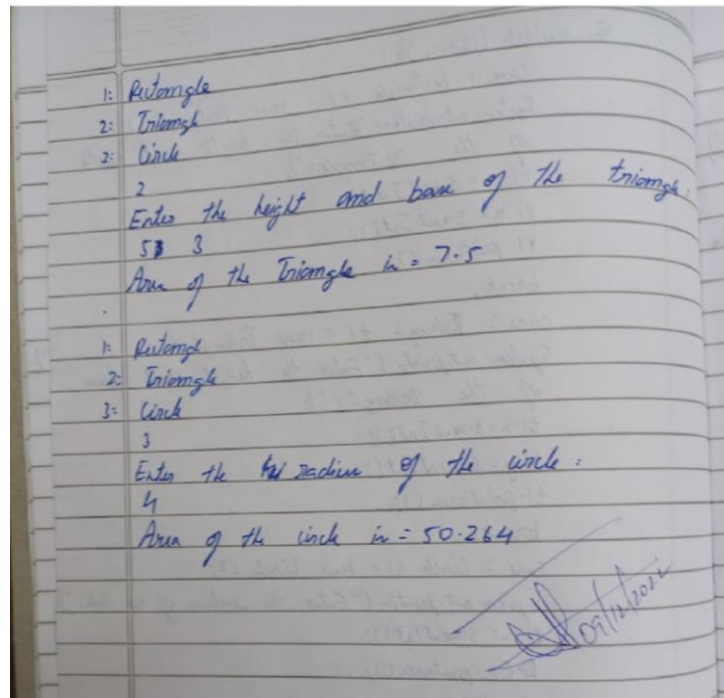 1: Rectangle
2: Triangle
3: Circle
2
Enter the height and base of the triangle:
5 3
Area of the Triangle is = 7.5
1: Rectangle
2: Triangle
3: Circle
3
Enter the radius of the circle:
4
Area of the circle is = 50.264
09/12/2022